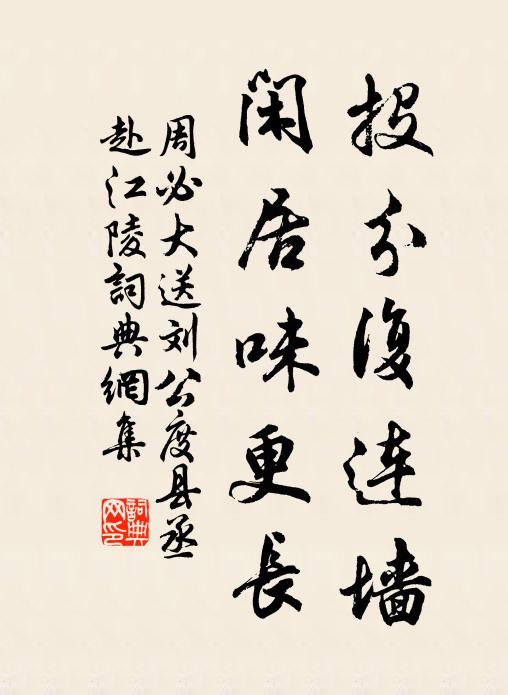 投分复连墙
闲居味更長
周必大送刘公度县丞
赴江陵詞典網集
詞典
网印